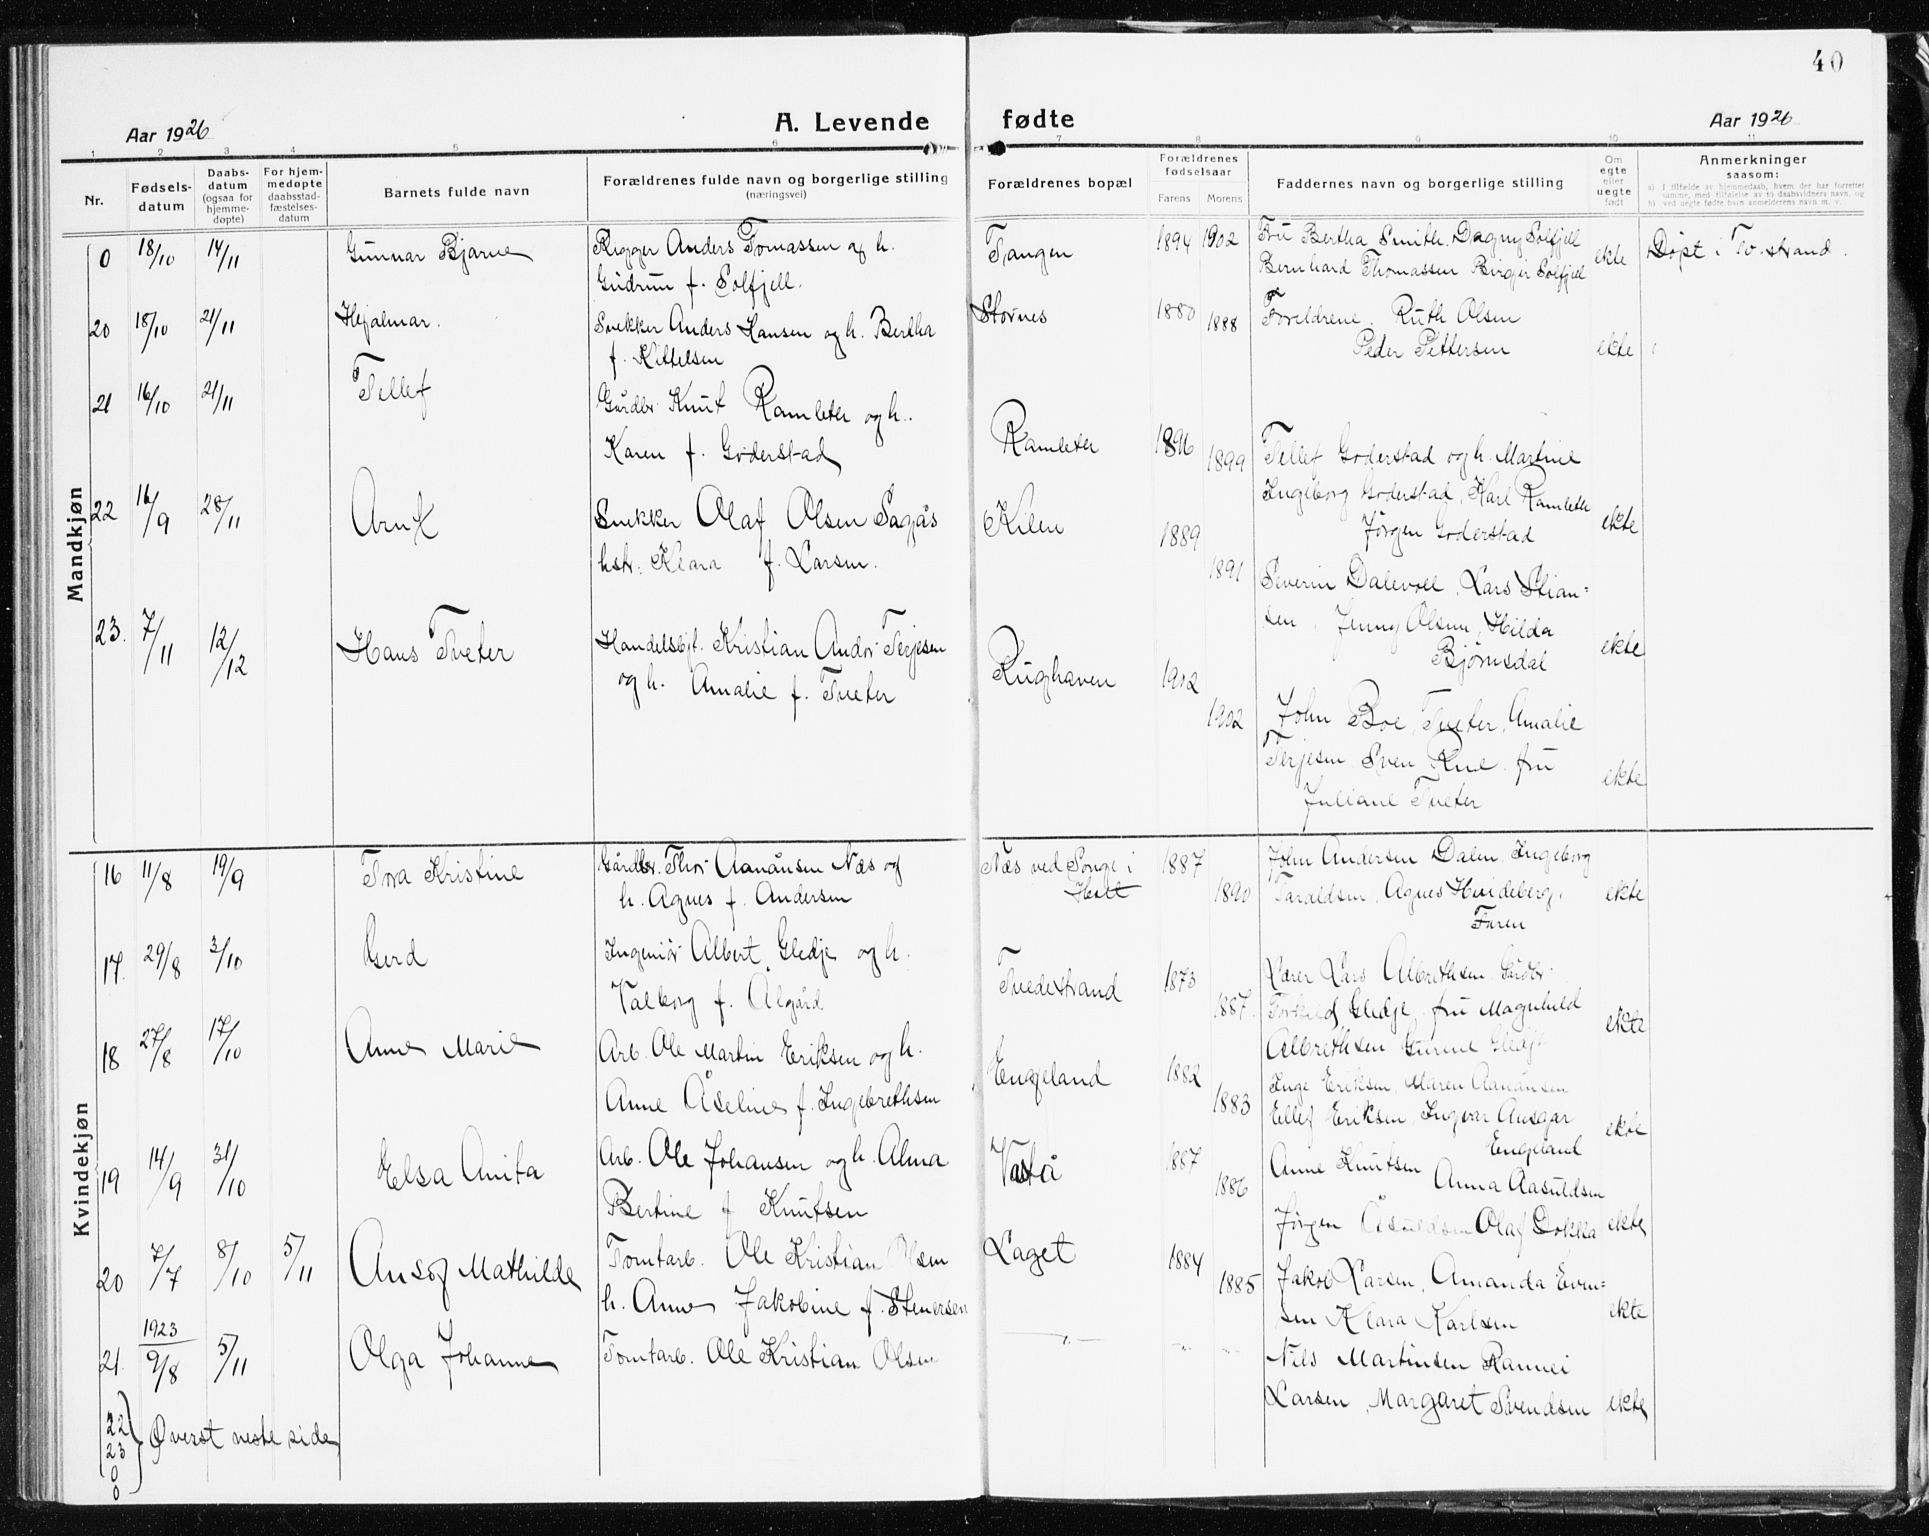 40
Aar 1926 A. Levende fødte Aar 1926
1 2 3 4 5 6 7 8 9 10 11
Nr. Fødsels-datum Daabs-datum (ogsaa for hjemme-døpte) For hjem-medøpte daabsstad-fæstelses-datum Barnets fulde navn Forældrenes fulde navn og borgerlige stilling (næringsvei) Forældrenes bopæl Forældrenes fødselsaar Farens Morens Faddernes navn og borgerlige stilling Om egte eller uegte født Anmerkninger saasom:
a) I tilfælde av hjemmedaab, hvem der har forrettet samme, med tilføielse av to daabsvidners navn, og
b) ved uegte fødte barn anmelderens navn m. v.
Mandkjøn
0 18/10 14/11 Gunnar Bjarne Rigger Anders Tomassen og h. Tangen 1894 1902 Fru Bertha Smith, Dagny Solfjell ekte Døpt i Tv.strand.
Gudrun f. Solfjell. Bernhard Thomassen Birger Solfjell
20 18/10 21/11 Hjalmar. Snekker Anders Hansen og h. Bertha Størnes 1880 1888 Foreldrene, Ruth Olsen
f. Kittelsen Peder Pettersen ekte
21 16/10 21/11 Tellef Gårdbr. Knut Ramleter og h.
Karen f. Goderstad Ramleter 1896 1899 Tellef Goderstad og h. Martine
Ingeborg Goderstad, Karl Ramleter ekte
Jørgen Goderstad
22 16/9 28/11 Arnt Snekker Olaf Olsen Sagås Kilen 1889
hstr: Klara f. Larsen. 1891 Severin Dalevoll, Lars Stian=
sen, Jenny Olsen, Hilda ekte
Bjørnsdal
23. 7/11 12/12 Hans Tveter Handelsbjt. Kristian Andor Terjesen Rughaven 1902
og h. Amalie f. Tveter 1902 John Boe, Tveter, Amalie
Terjesen Sven Rue, fru ekte
Juliane Tveter
Kvindekjøn
16 11/8 19/9 Tora Kristine Gårdbr. Thor Aanånsen Næs og Næs ved Songe i 1887 John Andersen Dalen, Ingeborg
h. Agnes f. Andersen Holt 1890 Taraldsen, Agnes Hvideberg, ekte
Faren
17. 29/8 3/10 Gerd Ingeniør Albert Gledje og h. Tvedestrand 1873 Lærer Lars Albrethsen, Gårdbr.
Valborg f. Ålgård 1887. Torkild Gledje, fru Magnhild ekte
Albrethsen Gurine Gledje
18 27/8 17/10 Anne Marie Arb. Ole Martin Eriksen og h. Engeland 1882 Inge Eriksen, Maren Aanånsen
Anne Åseline f. Ingebrethsen 1883 Ellef Eriksen, Ingvar Ansgar ekte
Engeland
19 14/9 31/10 Elsa Anita Arb. Ole Johansen og h. Alma Vastå 1887 Anne Knutsen Anna Aasuldsen
Bertine f Knutsen 1886 Jørgen Åsuldsen Olaf Dokka ekte
20 7/7 8/10 5/11 Ansøg Mathilde Tomtarb. Ole Kristian Olsen Laget 1884 Jakob Larsen, Amanda Even=
h. Anne Jakobine f. Stenersen 1885 sen Klara Karlsen ekte
1923
21. 9/8 5/11 Olga Johanne Tomtarb. Ole Kristian Olsen —"— -"- -"- Nils Martinsen Rannei
Larsen, Margaret Svendsen ekte
22
23
0
0
Øverst neste side